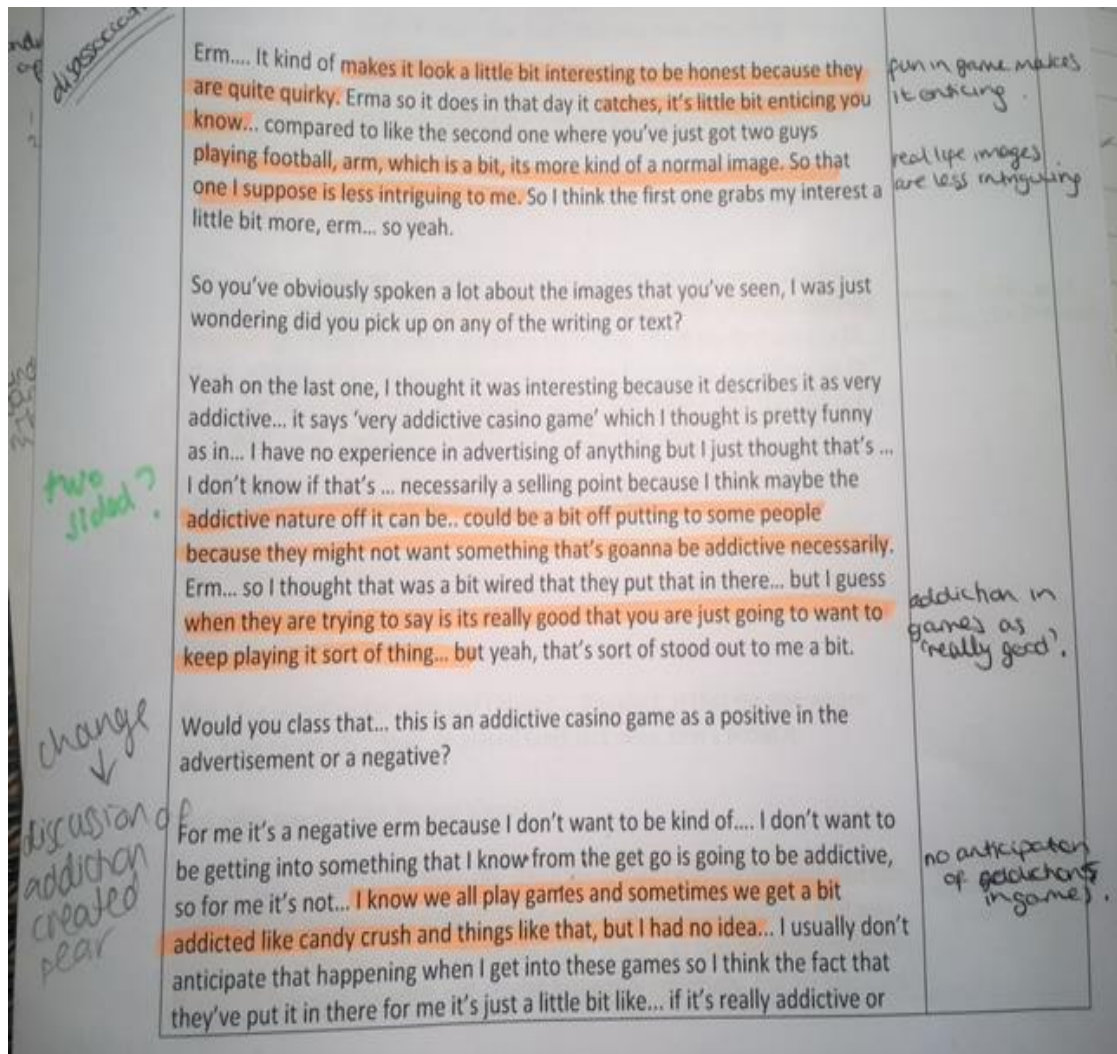 disassociat
Erm.... It kind of makes it look a little bit interesting to be honest because they
are quite quirky. Erma so it does in that day it catches, it's little bit enticing you
know... compared to like the second one where you've just got two guys
playing football, arm, which is a bit, its more kind of a normal image. So that
one I suppose is less intriguing to me. So I think the first one grabs my interest a
little bit more, erm... so yeah.
fun in game makes
it enticing.
real life images
are less intriguing
So you've obviously spoken a lot about the images that you've seen, I was just
wondering did you pick up on any of the writing or text?
Yeah on the last one, I thought it was interesting because it describes it as very
addictive... it says 'very addictive casino game' which I thought is pretty funny
as in... I have no experience in advertising of anything but I just thought that's ...
I don't know if that's ... necessarily a selling point because I think maybe the
addictive nature off it can be.. could be a bit off putting to some people
because they might not want something that's goanna be addictive necessarily.
Erm... so I thought that was a bit wired that they put that in there... but I guess
when they are trying to say is its really good that you are just going to want to
keep playing it sort of thing... but yeah, that's sort of stood out to me a bit.
two
sided?
addiction in
games as
'really good'.
Would you class that... this is an addictive casino game as a positive in the
advertisement or a negative?
change
↓
discussion of
addiction
created
fear
For me it's a negative erm because I don't want to be kind of.... I don't want to
be getting into something that I know from the get go is going to be addictive,
so for me it's not... I know we all play games and sometimes we get a bit
addicted like candy crush and things like that, but I had no idea... I usually don't
anticipate that happening when I get into these games so I think the fact that
they've put it in there for me it's just a little bit like... if it's really addictive or
no anticipation
of addictions
in games.